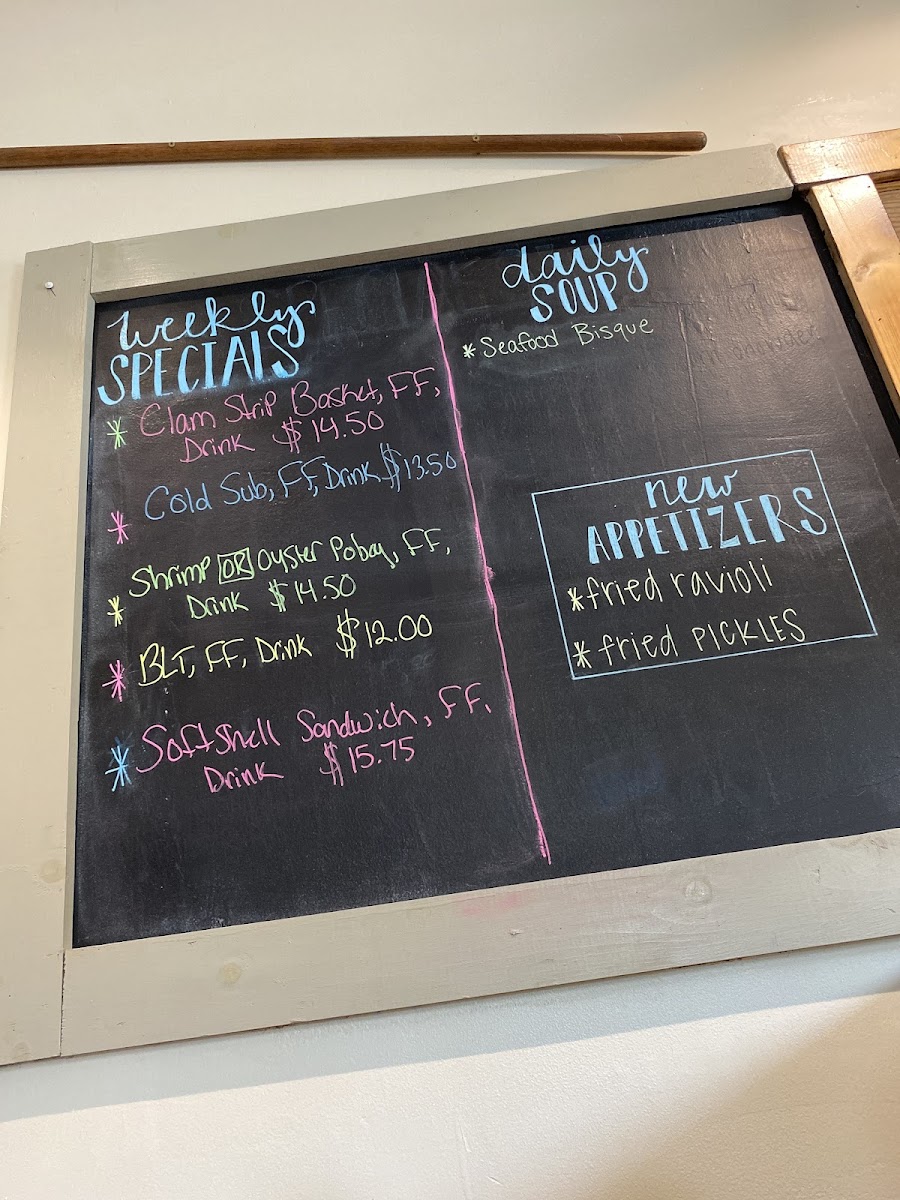 weekly
SPECIALS
* Clam Strip Basket, FF,
Drink $14.50
* Cold Sub, FF, Drink $13.50
* Shrimp OR Oyster Poboy, FF,
Drink $14.50
* BLT, FF, Drink $12.00
* Softshell Sandwich, FF,
Drink $15.75
daily
SOUP
* Seafood Bisque
new
APPETIZERS
* fried ravioli
* fried PICKLES